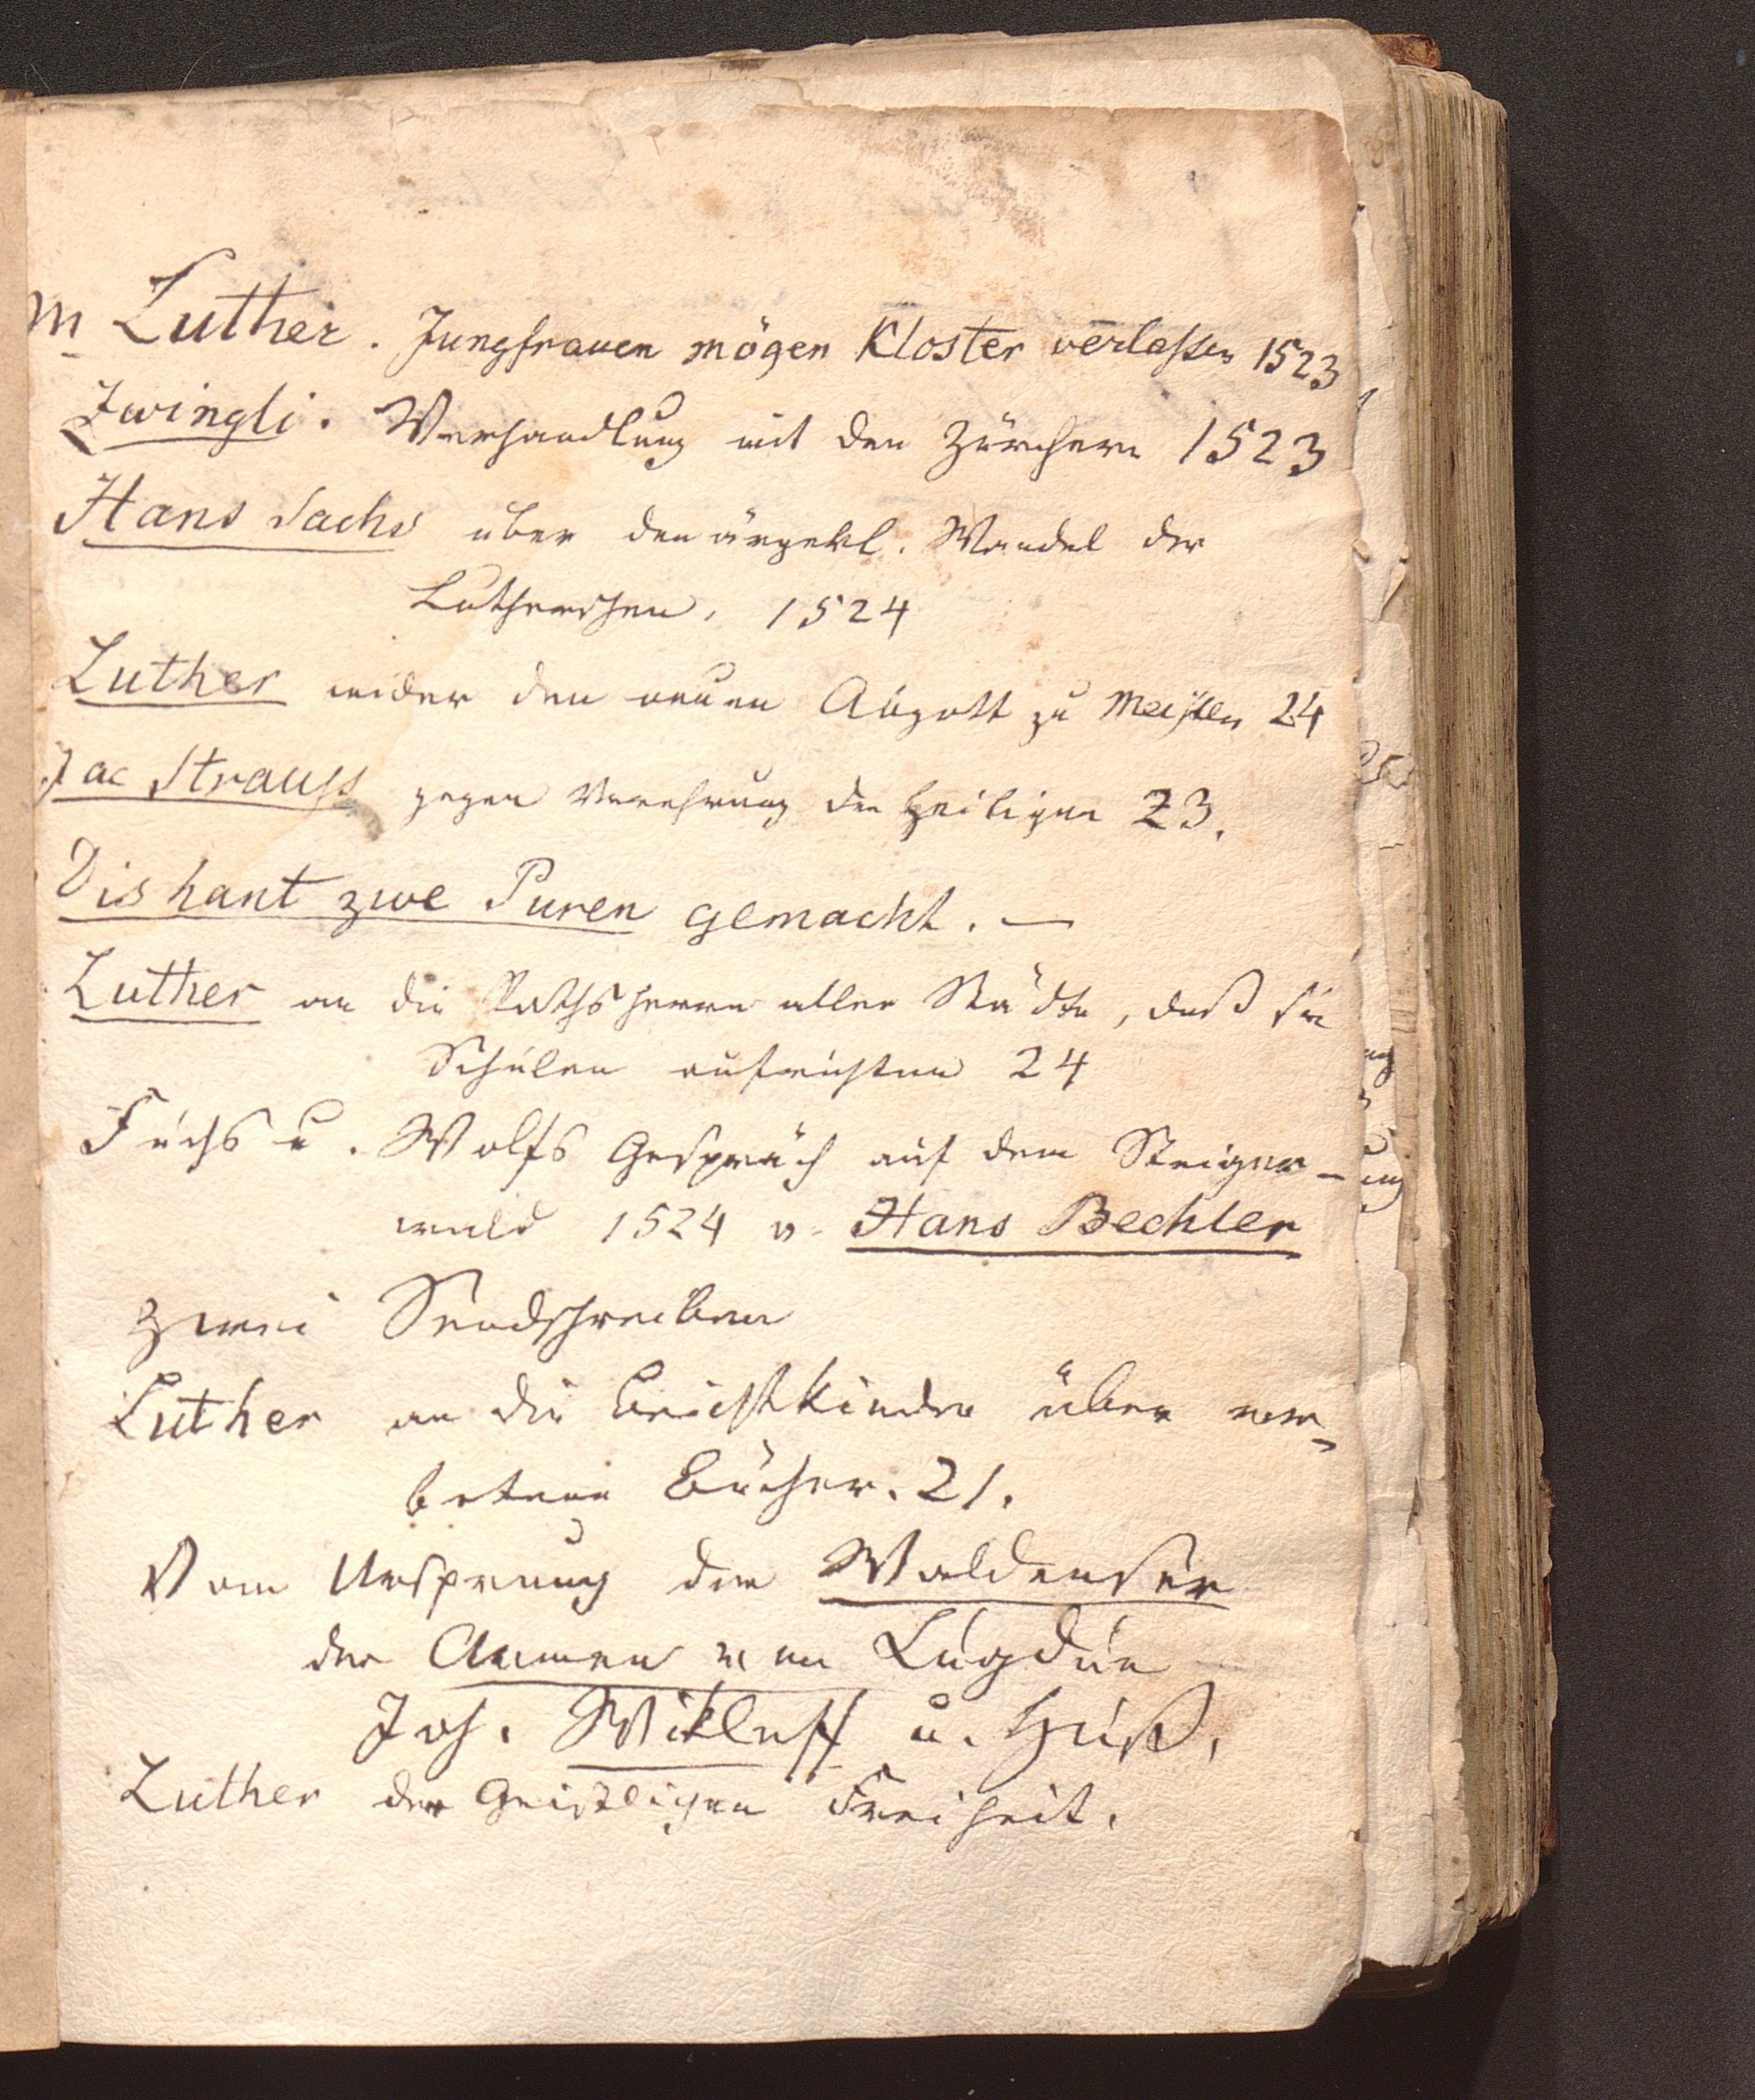 M Luther. Jungfrauen mögen Kloster verlassen 1523
Zwingli. Verhandlung mit den Zürchern 1523
Hans Sachs über den ärgerl. Wandel der
Lutherschen. 1524
Luther wider den neuen Abgott zu Meißen 24
Jac Strauss gegen Verehrung der Heiligen 23.
Dis hant zwe Puren gemacht. —
Luther an die Rathsherrn aller Städte, daß sie
Schulen aufrichten 24
Fuchs u. Wolfs Gespräch auf dem Steiger-
wald 1524 v. Hans Bechler
Zwei Sendschreiben
Luther an die Beichtkinder über ver-
botene Bücher. 21.
Vom Ursprung der Waldenser
der Armen von Lugdun
Joh. Wikleff u. Huß.
Luther der Geistlichen Freiheit.